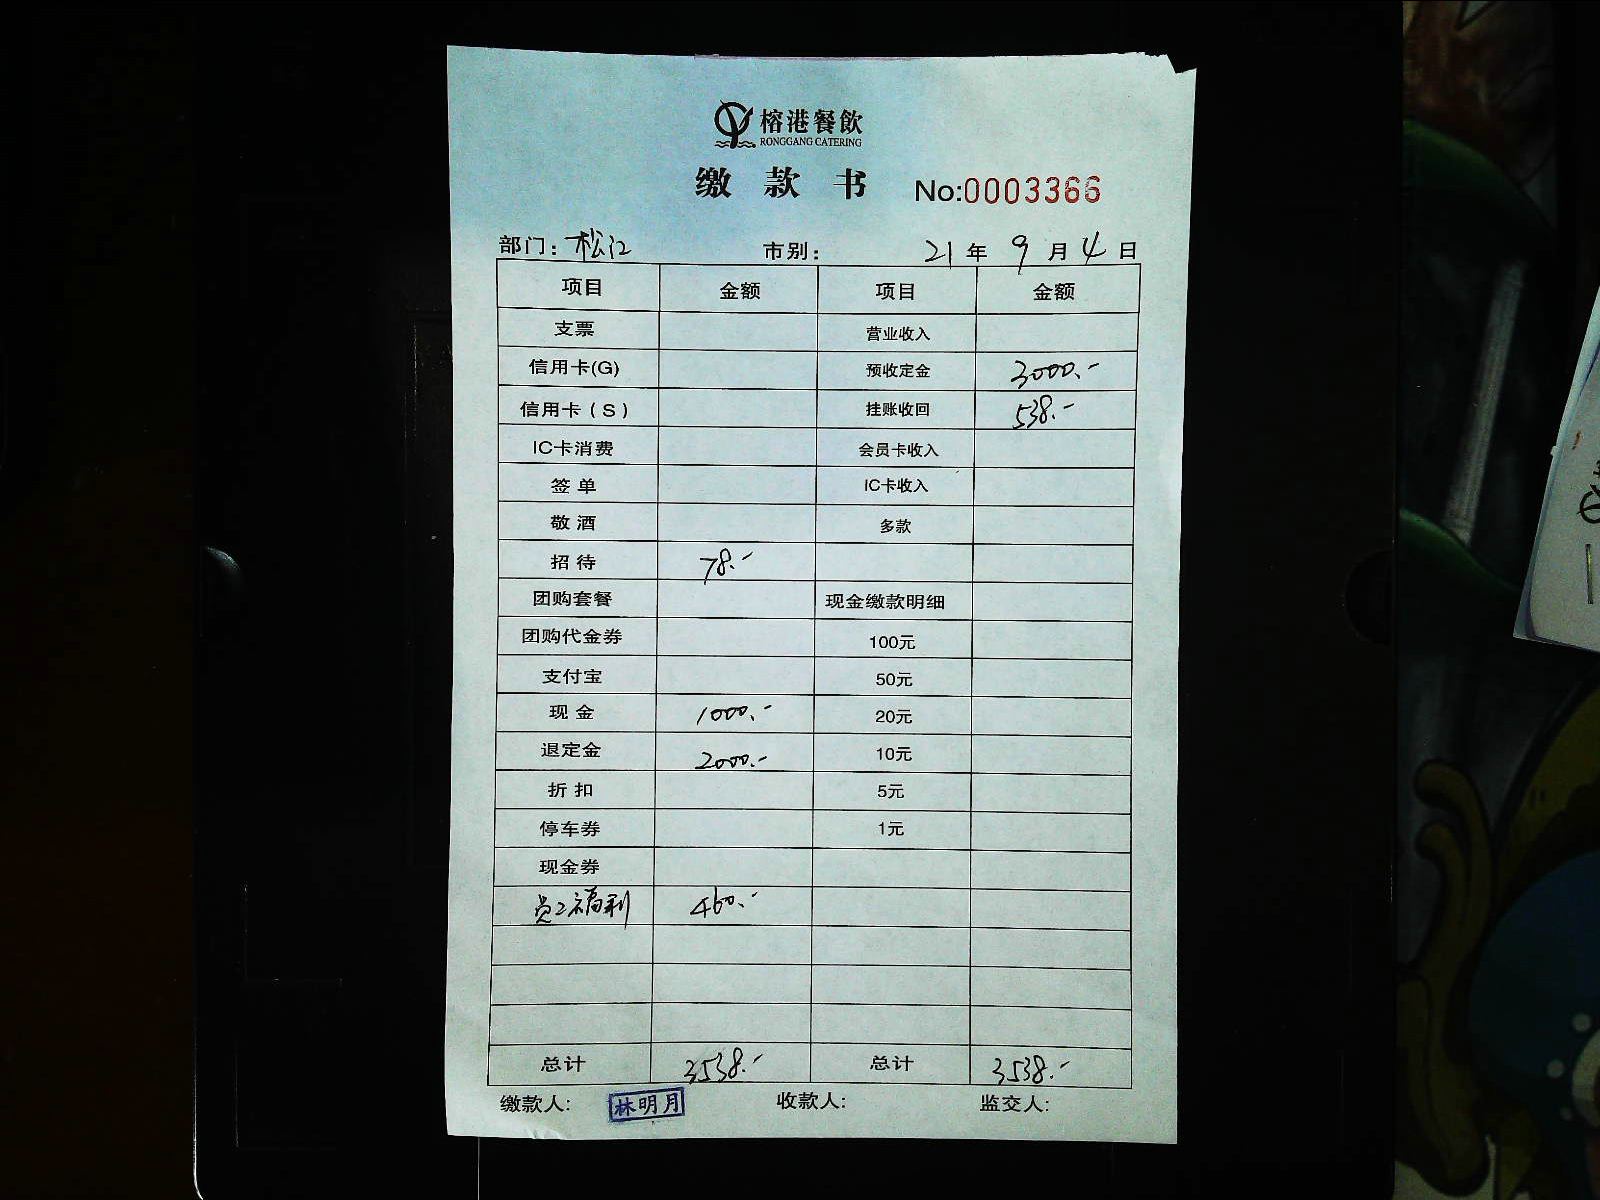 榕港餐飲
RONGGANG CATERING
缴款书 No:0003366
部门: 松江 市别: 21年9月4日
项目 金额 项目 金额
支票 营业收入
信用卡(G) 预收定金 3000.-
信用卡(S) 挂账收回 538.-
IC卡消费 会员卡收入
签单 IC卡收入
敬酒 多款
招待 78.-
团购套餐 现金缴款明细
团购代金券 100元
支付宝 50元
现金 1000.- 20元
退定金 2000.- 10元
折扣 5元
停车券 1元
现金券
员工福利 460.-
总计 3538.- 总计 3538.-
缴款人: 林明月 收款人: 监交人: